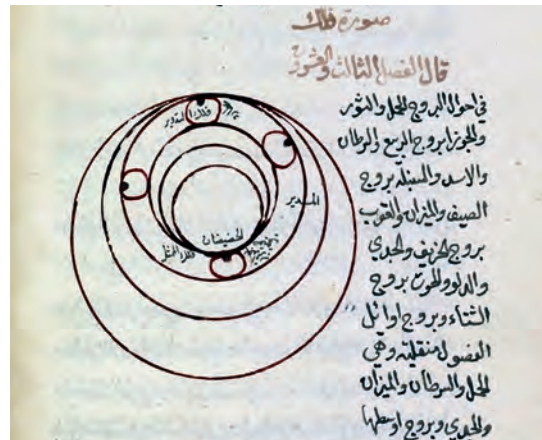 صورة فلك
قال الفصل الثالث والعشرون
في احوال البروج الحمل والثور
والجوزا بروج الربيع والسرطان
والاسد والسنبله بروج
الصيف والميزان والعقرب
بروج الخريف والجدي
والدلو والحوت بروج
الشتاء وبروج اوائل
الفصول منقلبة وهي
الحمل والسرطان والميزان
والجدي وبروج اوسطها
فلك التدوير
المدير
فلك الممثل